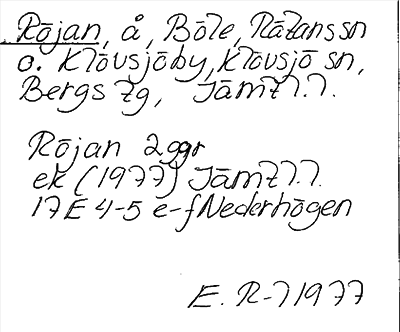 Röjan, å, Böle, Rätans sn
o. Klövsjöby, Klövsjö sn,
Bergs tg, Jämtl.
Röjan 2 ggr
ek (1977) Jämtl.
17E 4-5 e-f Nederhögen
E. R-71977